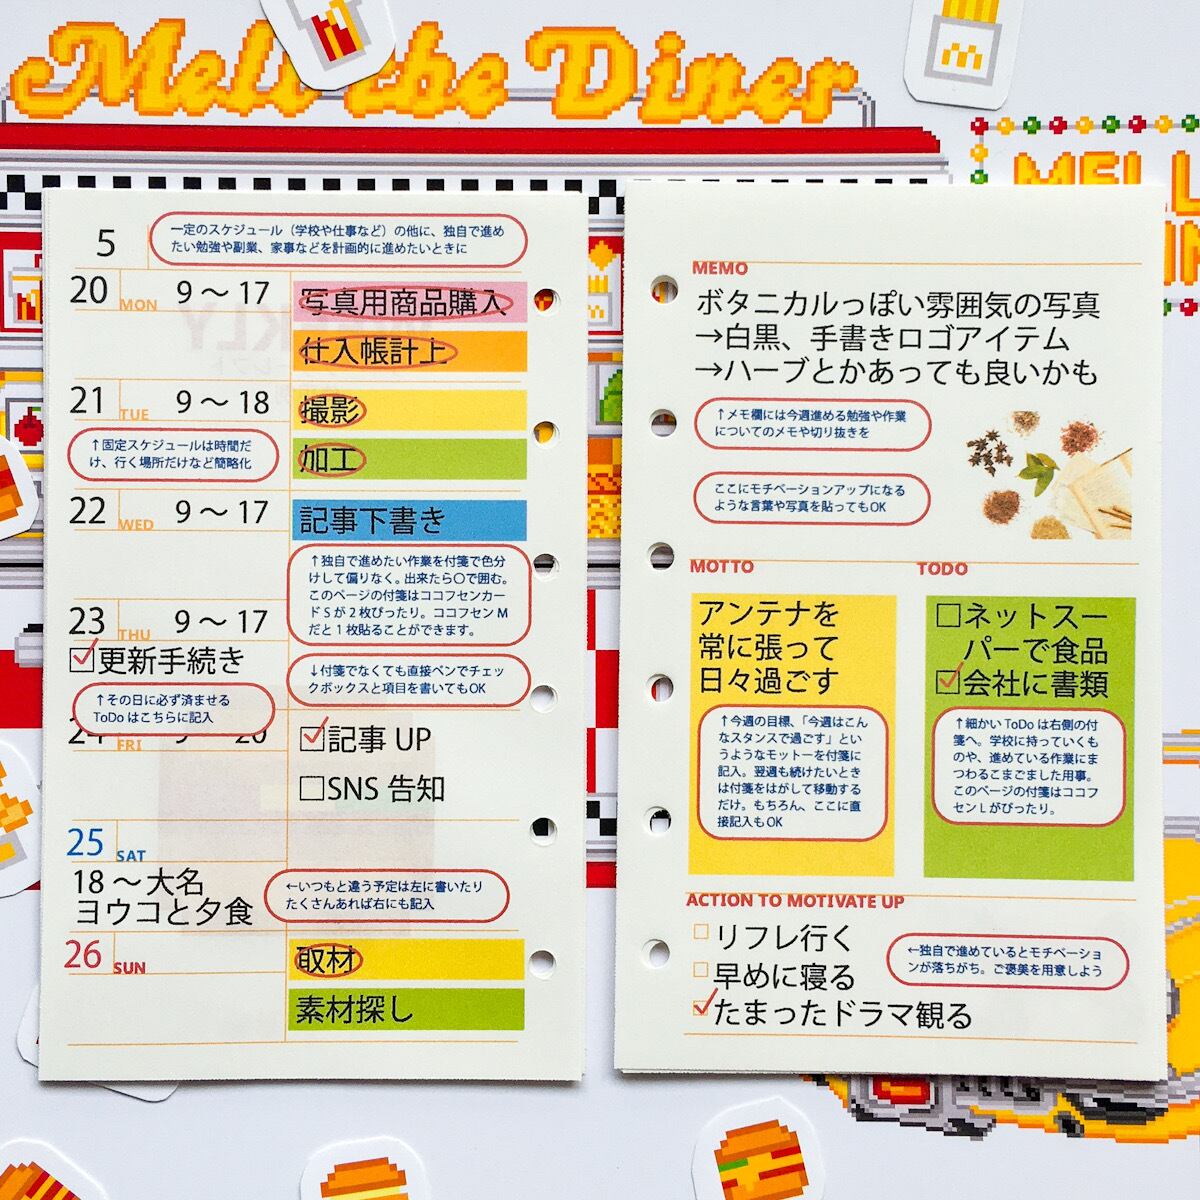 Mel the Diner
MEL
5
一定のスケジュール（学校や仕事など）の他に、独自で進め
たい勉強や副業、家事などを計画的に進めたいときに
20 MON 9〜17
写真用商品購入
仕入帳計上
21 TUE 9〜18
撮影
↑固定スケジュールは時間だ
け、行く場所だけなど簡略化
加工
22 WED 9〜17
記事下書き
↑独自で進めたい作業を付箋で色分
けして偏りなく。出来たら〇で囲む。
このページの付箋はココフセンカー
ドSが2枚ぴったり。ココフセンM
だと1枚貼ることができます。
23 THU 9〜17
☑更新手続き
↑その日に必ず済ませる
ToDoはこちらに記入
↓付箋でなくても直接ペンでチェッ
クボックスと項目を書いてもOK
24 FRI 9 20
☑記事UP
☐SNS告知
25 SAT
18〜大名
ヨウコと夕食
←いつもと違う予定は左に書いたり
たくさんあれば右にも記入
26 SUN
取材
素材探し
MEMO
ボタニカルっぽい雰囲気の写真
→白黒、手書きロゴアイテム
→ハーブとかあっても良いかも
↑メモ欄には今週進める勉強や作業
についてのメモや切り抜きを
ここにモチベーションアップになる
ような言葉や写真を貼ってもOK
MOTTO
アンテナを
常に張って
日々過ごす
↑今週の目標、「今週はこん
なスタンスで過ごす」とい
うようなモットーを付箋に
記入。翌週も続けたいとき
は付箋をはがして移動する
だけ。もちろん、ここに直
接記入もOK
TODO
☐ネットスー
パーで食品
☑会社に書類
↑細かいToDoは右側の付
箋へ。学校に持っていくも
のや、進めている作業にま
つわるこまごました用事。
このページの付箋はココフ
センLがぴったり。
ACTION TO MOTIVATE UP
☐リフレ行く
☐早めに寝る
☑たまったドラマ観る
←独自で進めているとモチベーショ
ンが落ちがち。ご褒美を用意しよう